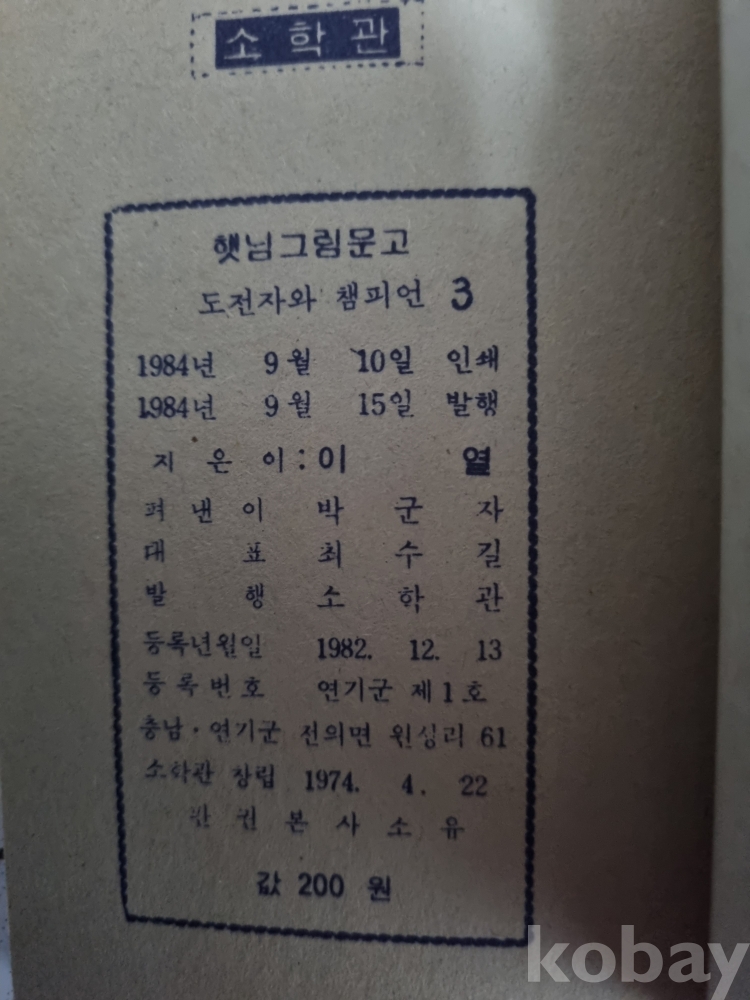 소학관
햇님그림문고
도전자와 챔피언 3
1984년 9월 10일 인쇄
1984년 9월 15일 발행
지은이:이 열
펴낸이 박군자
대표 최수길
발행 소학관
등록년월일 1982. 12. 13
등록번호 연기군 제1호
충남·연기군 전의면 원성리 61
소학관 창립 1974. 4. 22
판권본사소유
값 200 원
kobay